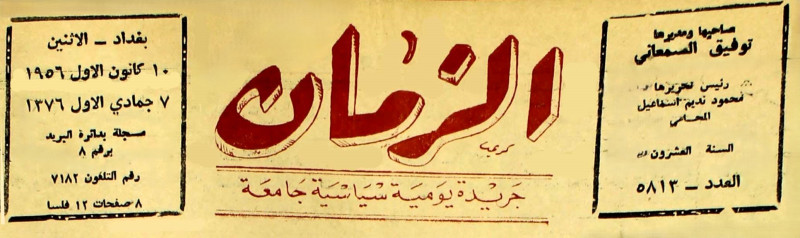 صاحبها ومديرها
توفيق السمعاني
رئيس تحريرها
محمود نديم اسماعيل
المحامي
السنة العشرون
العدد - ٥٨١٣
الزمان
جريدة يومية سياسية جامعة
بغداد - الاثنين
١٠ كانون الاول ١٩٥٦
٧ جمادي الاول ١٣٧٦
مسجلة بدائرة البريد
برقم ٨
رقم التلفون ٧١٨٢
٨ صفحات ١٢ فلسا